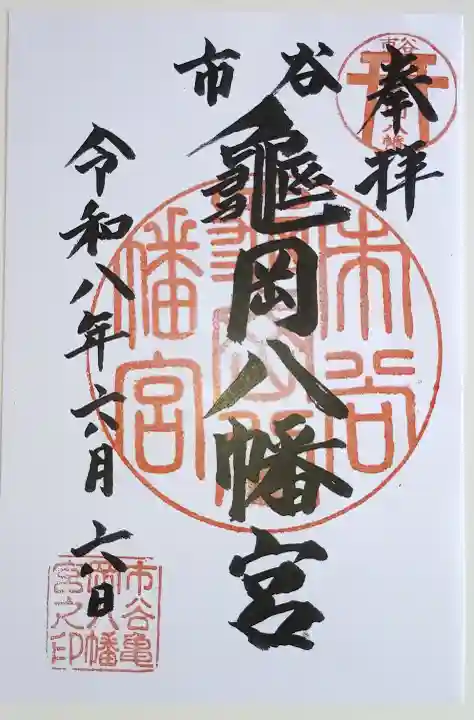 奉拝
市谷
龜岡八幡宮
令和八年六月六日
市谷
八幡
市谷
幡宮
市谷亀
岡八幡
宮之印